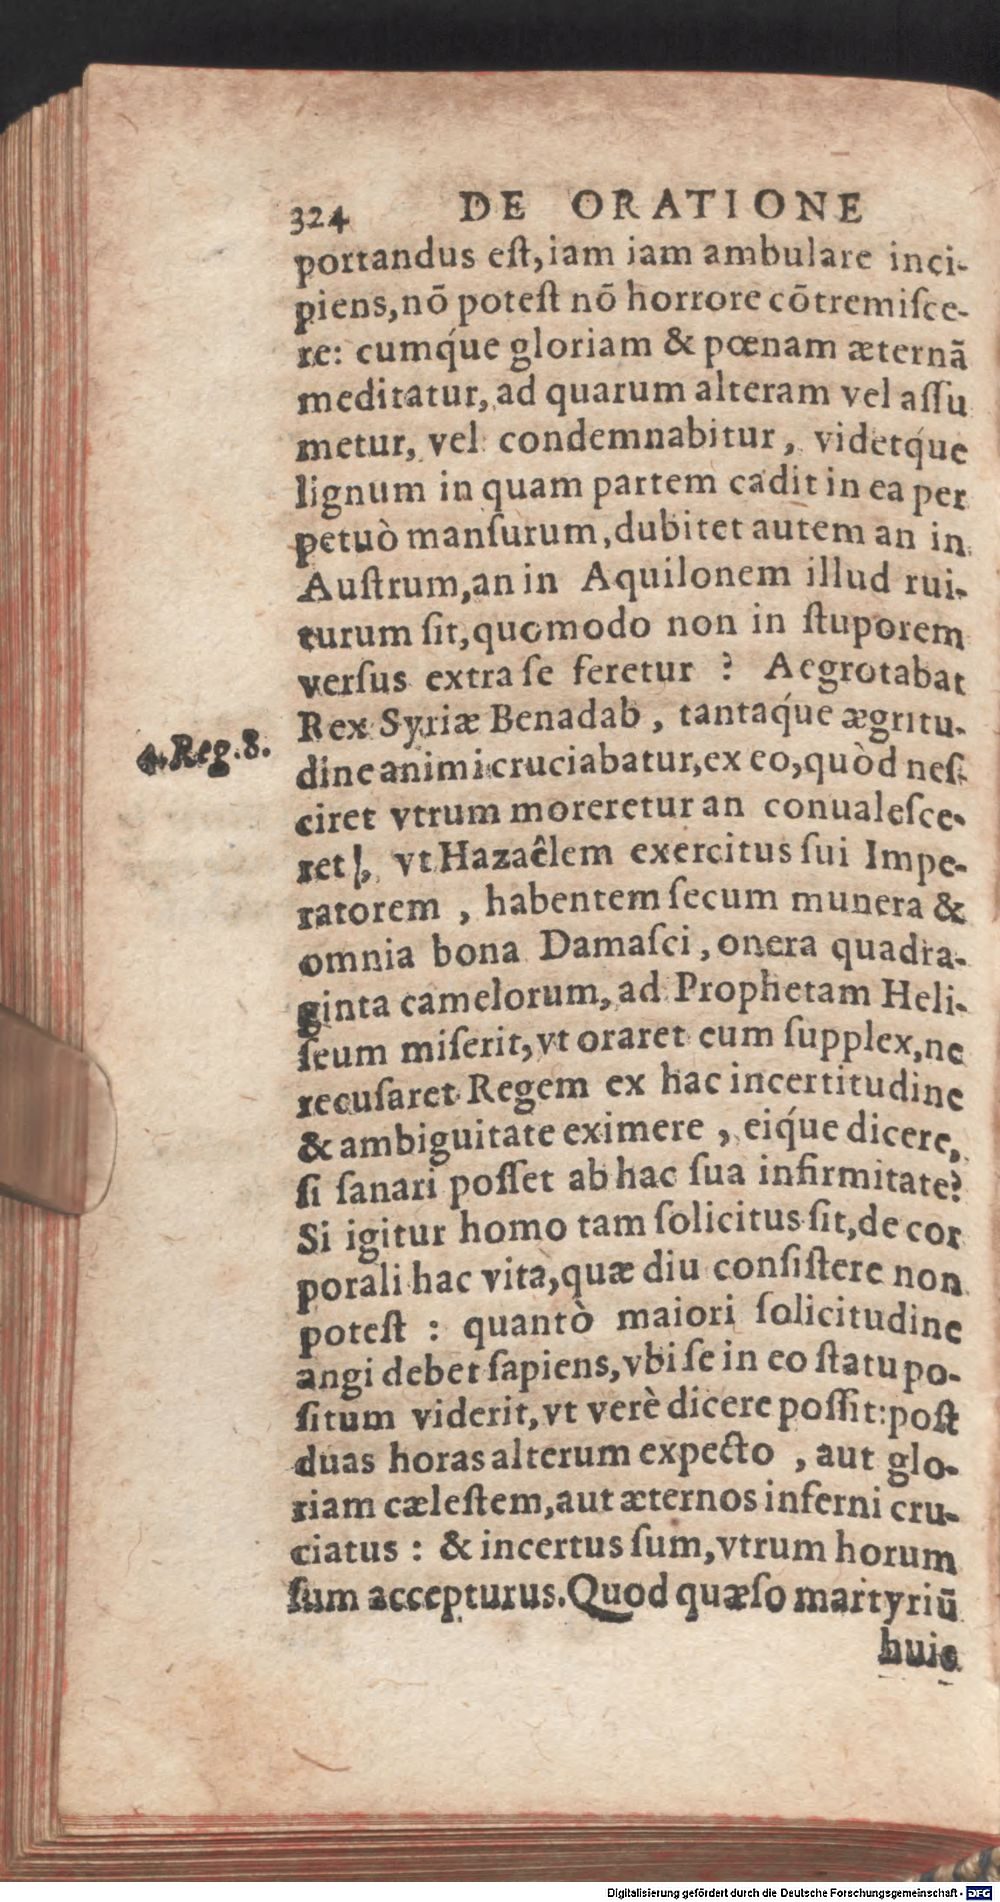 324 DE ORATIONE
portandus eſt, iam iam ambulare inci-
piens, nõ poteſt nõ horrore cõtremiſce-
re: cumq́ue gloriam & pœnam æternã
meditatur, ad quarum alteram vel aſſu
metur, vel condemnabitur, videtq́ue
lignum in quam partem cadit in ea per
petuò manſurum, dubitet autem an in
Auſtrum, an in Aquilonem illud rui-
turum ſit, quomodo non in ſtuporem
verſus extra ſe feretur ? Aegrotabat
Rex Syriæ Benadab, tantaq́ue ægritu-
4. Reg. 8.
dine animi cruciabatur, ex eo, quòd neſ-
ciret vtrum moreretur an conualeſce-
ret, vt Hazaêlem exercitus ſui Impe-
ratorem, habentem ſecum munera &
omnia bona Damaſci, onera quadra-
ginta camelorum, ad Prophetam Heli-
ſeum miſerit, vt oraret eum ſupplex, ne
recuſaret Regem ex hac incertitudine
& ambiguitate eximere, eiq́ue dicere,
ſi ſanari poſſet ab hac ſua infirmitate?
Si igitur homo tam ſolicitus ſit, de cor
porali hac vita, quæ diu conſiſtere non
poteſt : quantò maiori ſolicitudine
angi debet ſapiens, vbi ſe in eo ſtatu po-
ſitum viderit, vt verè dicere poſſit: poſt
duas horas alterum expecto, aut glo-
riam cæleſtem, aut æternos inferni cru-
ciatus : & incertus ſum, vtrum horum
ſum accepturus. Quod quæſo martyriũ
huic
Digitalisierung gefördert durch die Deutsche Forschungsgemeinschaft - DFG